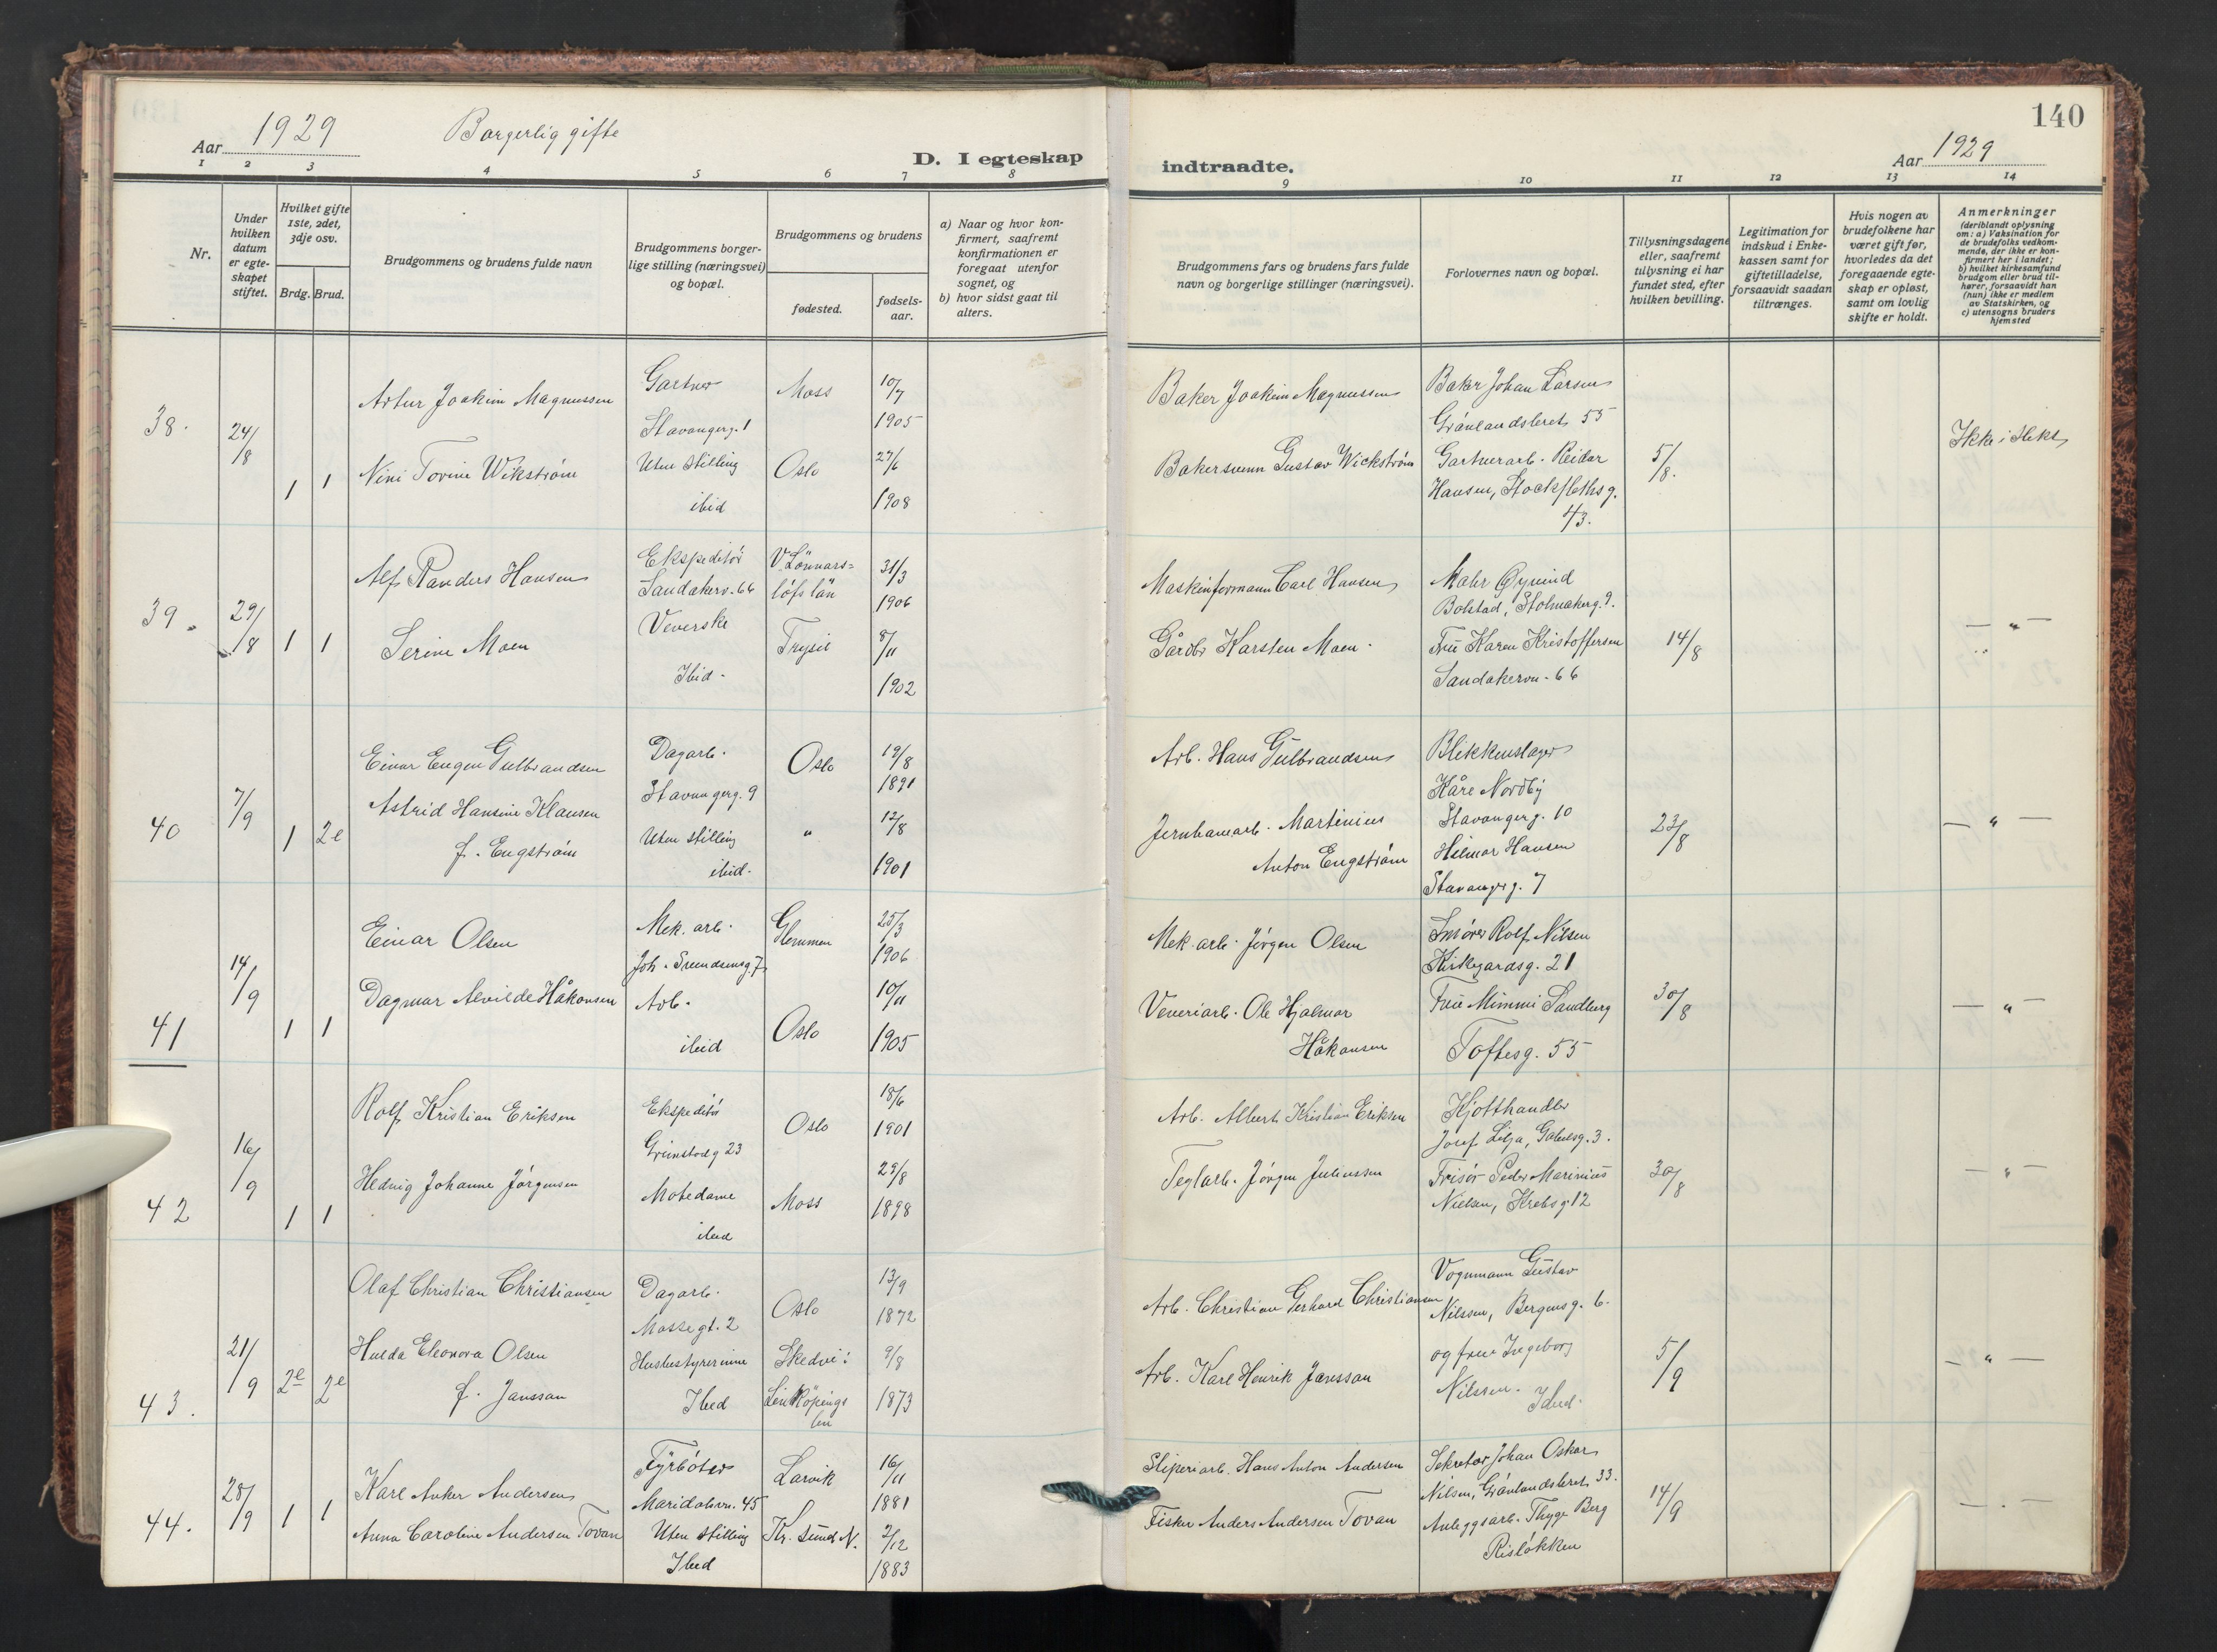 140
Aar 1929 Borgerlig gifte
D. I egteskap indtraadte.
Aar 1929
1 2 3 4 5 6 7 8 9 10 11 12 13 14
Nr.
Under hvilken datum er egte-skapet stiftet.
Hvilket gifte 1ste, 2det, 3dje osv.
Brdg. Brud.
Brudgommens og brudens fulde navn
Brudgommens borger-lige stilling (næringsvei) og bopæl.
Brudgommens og brudens
fødested.
fødsels-aar.
a) Naar og hvor kon-firmert, saafremt konfirmationen er foregaat utenfor sognet, og
b) hvor sidst gaat til alters.
Brudgommens fars og brudens fars fulde navn og borgerlige stillinger (næringsvei).
Forlovernes navn og bopæl.
Tillysningsdagene eller, saafremt tillysning ei har fundet sted, efter hvilken bevilling.
Legitimation for indskud i Enke-kassen samt for giftetilladelse, forsaavidt saadan tiltrænges.
Hvis nogen av brudefolkene har været gift før, hvorledes da det foregaaende egte-skap er opløst, samt om lovlig skifte er holdt.
Anmerkninger (deriblandt oplysning om: a) Vaksination for de brudefolks vedkom-mende, der ikke er kon-firmert her i landet; b) hvilket kirkesamfund brudgom eller brud til-hører, forsaavidt han (hun) ikke er medlem av Statskirken, og c) utensogns bruders hjemsted
38. 24/8 1 1
Artur Joakim Magnussen
Gartner
Stavangerg. 1
Moss
10/7 1905
Baker Joakim Magnussen
Baker Johan Larsen
Grønlandsleret 55
Nini Tovine Wikstrøm
Uten stilling
ibid
Oslo
27/6 1908
Bakersvenn Gustav Wickstrøm
Gartnerarb. Reidar
Hansen, Stockflethsg.
43.
5/8.
Ikke i slekt
39. 29/8 1 1
Alf Randers Hansen
Ekspeditør
Sandakerv. 66
V Lönnars=
löfs län
31/3 1906
Maskinformann Carl Hansen
Maler Øyvind
Bolstad, Stolmakerg. 9.
Serine Moen
Veverske
Ibid.
Trysil
8/11 1902
Gårdbr Karsten Moen.
Frue Karen Kristoffersen
Sandakervn. 66
14/8
— " —
40 7/9 1 2e
Einar Eugen Gulbrandsen
Dagarb.
Stavangerg. 9
Oslo
19/8 1891
Arb. Hans Gulbrandsen
Blikkenslager
Kåre Nordby
Stavangerg. 10
Astrid Hansine Klausen
f. Engstrøm
Uten stilling
ibid.
"
12/8 1901
Jernbanearb. Martinius
Anton Engstrøm
Hilmar Hansen
Stavangerg. 7
23/8
— " —
41 14/9 1 1
Einar Olsen
Mek. arb.
Joh. Svendsensg. 7
Glemmen
25/3 1906
Mek. arb. Jørgen Olsen
Rolf Nilsen
Kirkegardsg. 21
Dagmar Alvilde Håkonsen
Arb.
ibid
Oslo
10/11 1905
Veveriarb. Ole Hjalmar
Håkonsen
Frue Mimmi Sandberg
Toftesg. 55
30/8
— " —
42 16/9 1 1
Rolf Kristian Eriksen
Ekspeditør
Grimstadg 23
Oslo
18/6 1901
Arb. Albert Kristian Eriksen
Kjøtthandler
Josef Lilja, Gabelsg. 3.
Hedvig Johanne Jørgensen
Motedame
ibid
Moss
29/8 1898
Teglarb. Jørgen Juliussen
Frisør Peder Marinius
Nielsen, Krebsg 12
30/8
— " —
43. 21/9 2e 2e
Olaf Christian Christiansen
Dagarb.
Mossegt. 2
Oslo
13/9 1872
Arb. Christian Gerhard Christiansen
Vognmann Gustav
Nilssen, Bergensg. 6.
Hulda Eleonora Olsen
f. Janssan
Husbestyrerinne
Ibid
Skedvi:
Linköpings
len
9/8 1873
Arb. Karl Henrik Janssan
og frue Ingeborg
Nilssen. Ibid.
5/9
— " —
44. 28/9 1 1
Karl Anker Andersen
Fyrbøter
Maridalsvn. 45
Larvik
16/11 1881
Sliperiarb. Hans Anton Andersen
Sekretær Johan Oskar
Nilsen, Grønlandsleret 33.
Anna Caroline Andersen Tovan
Uten stilling
Ibid
Kr. sund N.
2/12 1883
Fisker Anders Andersen Tovan
Anleggsarb. Thyge Berg
Risløkken
14/9
— " —